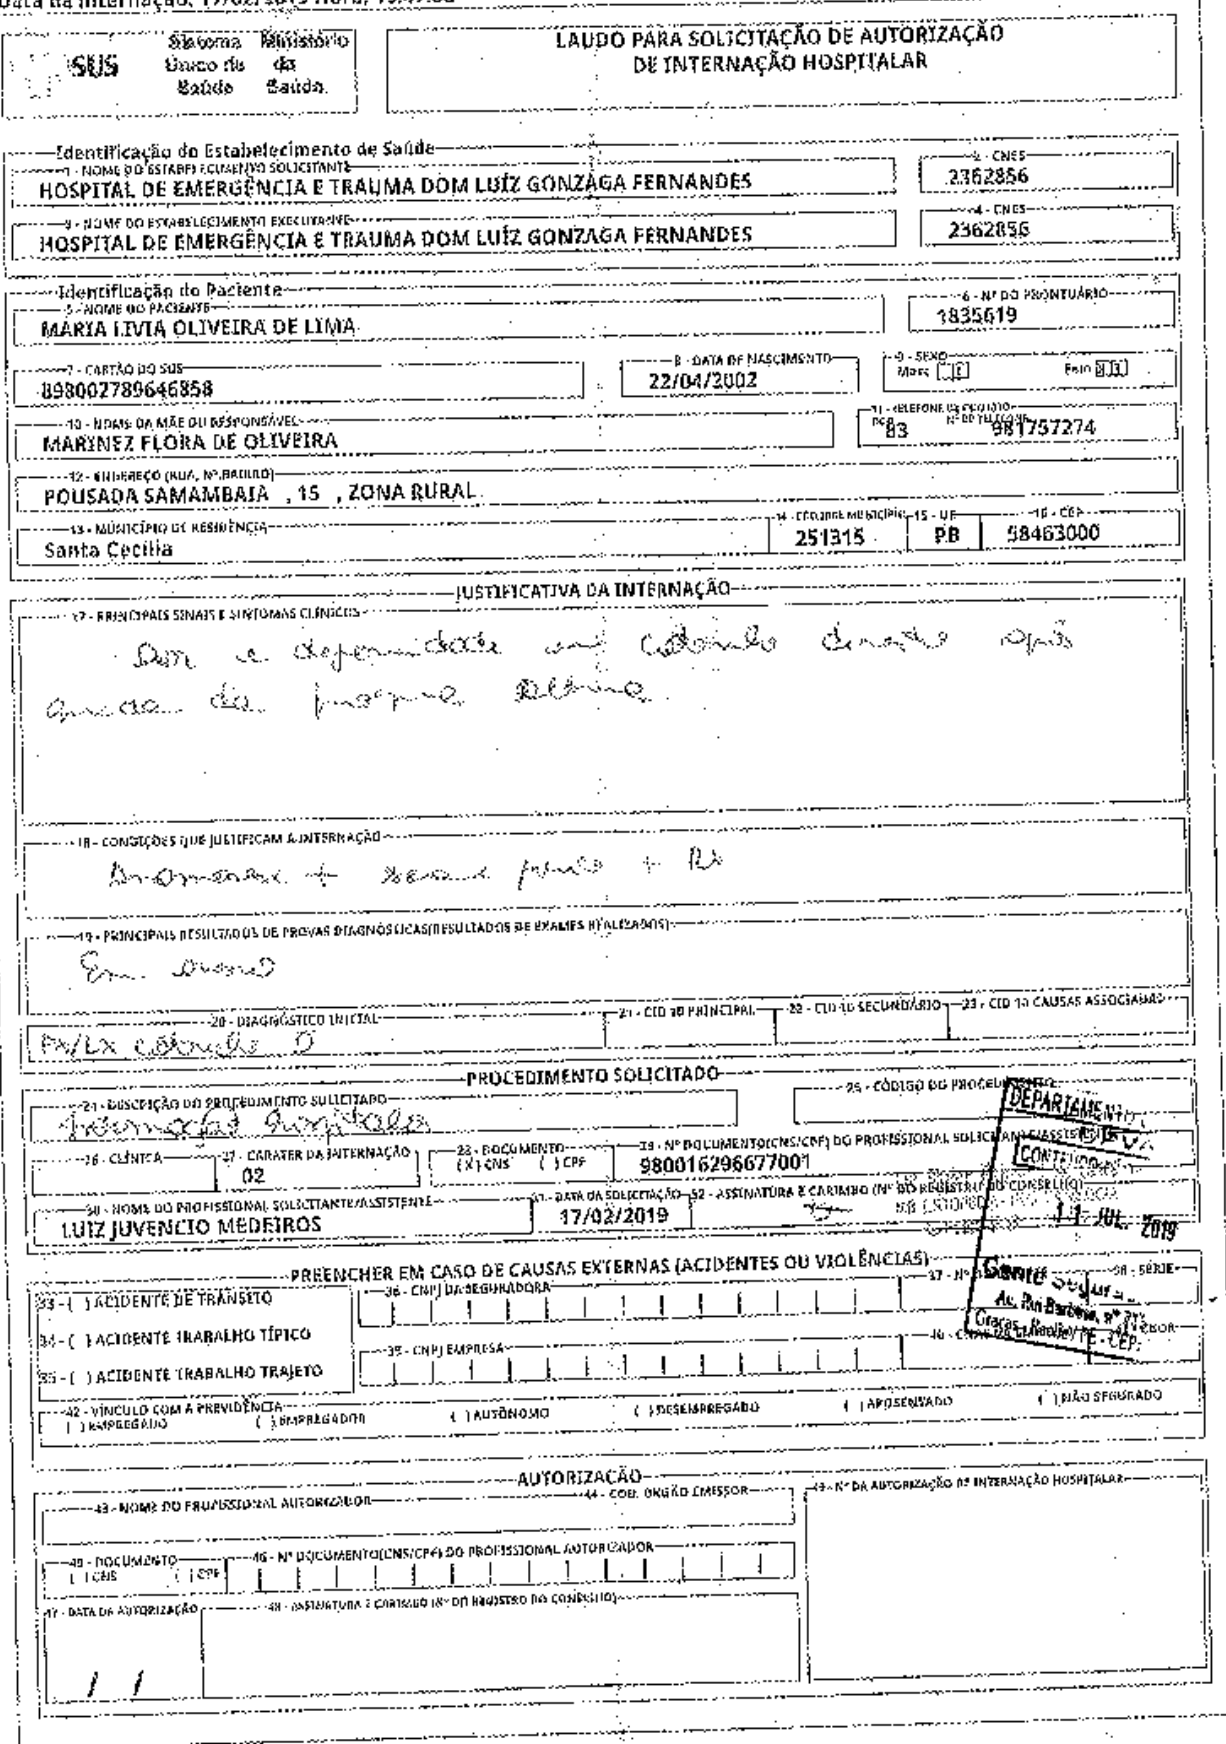 Data da Internação: 17/02/2019 Hora:
SUS
Sistema Ministério
Único de da
Saúde Saúde
LAUDO PARA SOLICITAÇÃO DE AUTORIZAÇÃO
DE INTERNAÇÃO HOSPITALAR
Identificação do Estabelecimento de Saúde
1 - NOME DO ESTABELECIMENTO SOLICITANTE
HOSPITAL DE EMERGÊNCIA E TRAUMA DOM LUÍZ GONZAGA FERNANDES
2 - CNES
2362856
3 - NOME DO ESTABELECIMENTO EXECUTANTE
HOSPITAL DE EMERGÊNCIA E TRAUMA DOM LUÍZ GONZAGA FERNANDES
4 - CNES
2362856
Identificação do Paciente
5 - NOME DO PACIENTE
MARIA LIVIA OLIVEIRA DE LIMA
6 - Nº DO PRONTUÁRIO
1835619
7 - CARTÃO DO SUS
898002789646858
8 - DATA DE NASCIMENTO
22/04/2002
9 - SEXO
Masc Fem
10 - NOME DA MÃE OU RESPONSÁVEL
MARINEZ FLORA DE OLIVEIRA
11 - TELEFONE DE CONTATO
Nº DO TELEFONE
83 981757274
12 - ENDEREÇO (RUA, Nº, BAIRRO)
POUSADA SAMAMBAIA , 15 , ZONA RURAL
13 - MUNICÍPIO DE RESIDÊNCIA
Santa Cecília
251315
15 - UF
PB
16 - CEP
58463000
JUSTIFICATIVA DA INTERNAÇÃO
17 - PRINCIPAIS SINAIS E SINTOMAS CLÍNICOS
Dor e deformidade em cotovelo direito após
queda da própria altura.
18 - CONDIÇÕES QUE JUSTIFICAM A INTERNAÇÃO
Anamnese + exame físico + RX
19 - PRINCIPAIS RESULTADOS DE PROVAS DIAGNÓSTICAS(RESULTADOS DE EXAMES REALIZADOS)
Em anexo
20 - DIAGNÓSTICO INICIAL
FX/LX cotovelo D
21 - CID 10 PRINCIPAL
22 - CID 10 SECUNDÁRIO
23 - CID 10 CAUSAS ASSOCIADAS
PROCEDIMENTO SOLICITADO
24 - DESCRIÇÃO DO PROCEDIMENTO SOLICITADO
Internação hospitalar
25 - CÓDIGO DO PROCEDIMENTO
26 - CLÍNICA
27 - CARATER DA INTERNAÇÃO
02
28 - DOCUMENTO
(X) CNS ( ) CPF
29 - Nº DOCUMENTO(CNS/CPF) DO PROFISSIONAL SOLICITANTE/ASSISTENTE
980016296677001
30 - NOME DO PROFISSIONAL SOLICITANTE/ASSISTENTE
LUIZ JUVENCIO MEDEIROS
31 - DATA DA SOLICITAÇÃO
17/02/2019
32 - ASSINATURA E CARIMBO (Nº DO REGISTRO DO CONSELHO)
DEPARTAMENTO
11 JUL. 2019
Gente Segur
PREENCHER EM CASO DE CAUSAS EXTERNAS (ACIDENTES OU VIOLÊNCIAS)
33 - ( ) ACIDENTE DE TRÂNSITO
34 - ( ) ACIDENTE TRABALHO TÍPICO
35 - ( ) ACIDENTE TRABALHO TRAJETO
36 - CNPJ DA SEGURADORA
38 - SÉRIE
39 - CNPJ EMPRESA
42 - VÍNCULO COM A PREVIDÊNCIA
( ) EMPREGADO ( ) EMPREGADOR ( ) AUTÔNOMO ( ) DESEMPREGADO ( ) APOSENTADO ( ) NÃO SEGURADO
AUTORIZAÇÃO
43 - NOME DO PROFISSIONAL AUTORIZADOR
44 - COD. ORGÃO EMISSOR
49 - Nº DA AUTORIZAÇÃO DE INTERNAÇÃO HOSPITALAR
45 - DOCUMENTO
( ) CNS ( ) CPF
46 - Nº DOCUMENTO(CNS/CPF) DO PROFISSIONAL AUTORIZADOR
47 - DATA DA AUTORIZAÇÃO
/ /
48 - ASSINATURA E CARIMBO (Nº DO REGISTRO DO CONSELHO)